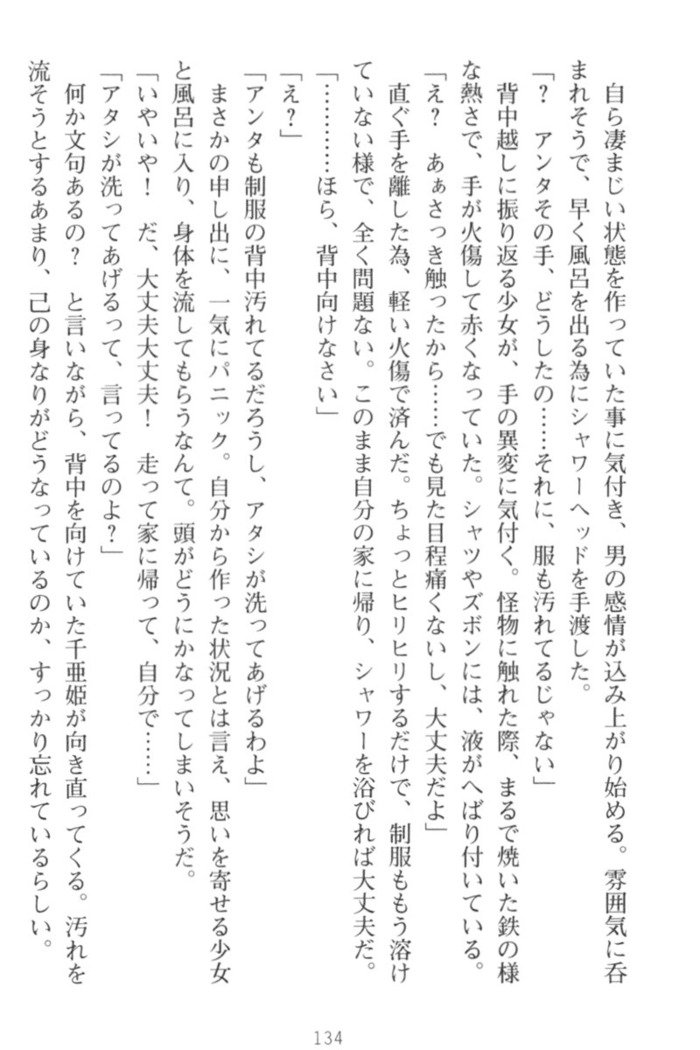 自ら凄まじい状態を作っていた事に気付き、男の感情が込み上がり始める。雰囲気に呑
まれそうで、早く風呂を出る為にシャワーヘッドを手渡した。
「？　アンタその手、どうしたの……それに、服も汚れてるじゃない」
背中越しに振り返る少女が、手の異変に気付く。怪物に触れた際、まるで焼いた鉄の様
な熱さで、手が火傷して赤くなっていた。シャツやズボンには、液がへばり付いている。
「え？　あぁさっき触ったから……でも見た目程痛くないし、大丈夫だよ」
直ぐ手を離した為、軽い火傷で済んだ。ちょっとヒリヒリするだけで、制服ももう溶け
ていない様で、全く問題ない。このまま自分の家に帰り、シャワーを浴びれば大丈夫だ。
「…………ほら、背中向けなさい」
「え？」
「アンタも制服の背中汚れてるだろうし、アタシが洗ってあげるわよ」
まさかの申し出に、一気にパニック。自分から作った状況とは言え、思いを寄せる少女
と風呂に入り、身体を流してもらうなんて。頭がどうにかなってしまいそうだ。
「いやいや！　だ、大丈夫大丈夫！　走って家に帰って、自分で……」
「アタシが洗ってあげるって、言ってるのよ？」
何か文句あるの？　と言いながら、背中を向けていた千亜姫が向き直ってくる。汚れを
流そうとするあまり、己の身なりがどうなっているのか、すっかり忘れているらしい。
134